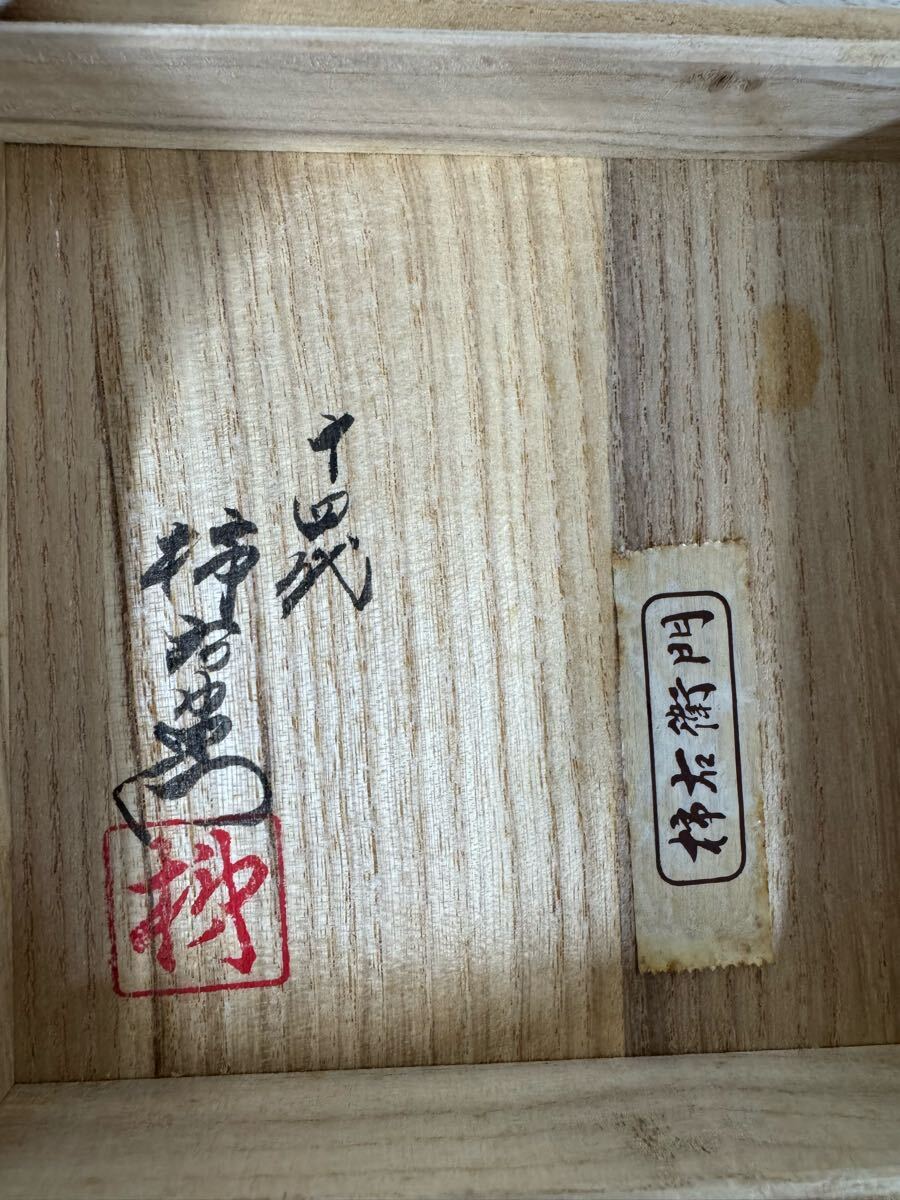 十四代
柿右衛門
柿
柿右衛門